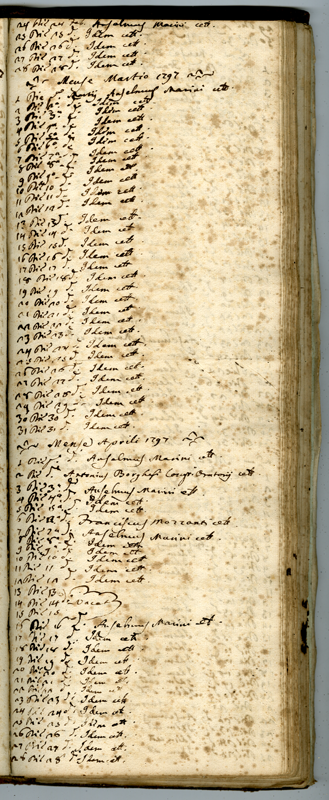 24 Die 24 d. Anselmus Marini cett.
25 Die 25 d. Idem cett.
26 Die 26 d. Idem cett.
27 Die 27 d. Idem cett.
28 Die 28 d. Idem cett.
Mense Martio 1797
1 Die Anselmus Marini cett
2 Die 2 d. Idem cett
3 Die 3 d. Idem cett
4 Die Idem cett
5 Die Idem cett
6 Die 6 Idem cett
7 Die 7 Idem cett
8 Die 8 Idem cett
9 Die 9 d. Idem cett
10 Die 10 d. Idem cett
11 Die 11 d. Idem cett
12 Die 12 d. Idem cett
13 Die 13 d. Idem cett.
14 Die 14 d. Idem cett
15 Die 15 d. Idem cett
16 Die 16 d. Idem cett
17 Die 17 d. Idem cett
18 Die 18 d. Idem cett
19 Die 19 d. Idem cett
20 Die 20 d. Idem cett
21 Die 21 d. Idem cett
22 Die 22 d. Idem cett
23 Die 23 d. Idem cett
24 Die 24 d. Idem cett
25 Die 25 d. Idem cett
26 Die 26 d. Idem cett
27 Die 27 d. Idem cett
28 Die 28 d. Idem cett
29 Die 29 d. Idem cett
30 Die 30 d. Idem cett
31 Die 31 d. Idem cett
Mense Aprili 1797
1 Die Anselmus Marini cett
2 Die Antonius Borghesi cett
3 Die 3 d. Anselmus Marini cett.
4 Die 4 d. Idem cett
5 Die 5 d. Idem cett
6 Die Franciscus cett
7 Die 7 d. Anselmus Marini cett.
8 Die Idem cett
9 Die Idem cett
10 Die Idem cett
11 Die 11 d. Idem cett
12 Die 12 d. Idem cett
13 Die 13
14 Die 14 Vacat
15 Die 15
16 Die 16 d. Anselmus Marini cett.
17 Die 17 d. Idem cett
18 Die 18 d. Idem cett
19 Die 19 d. Idem cett
20 Die 20 d. Idem cett
21 Die 21 d. Idem cett
22 Die 22 Idem cett
23 Die 23 d. Idem cett
24 Die 24 d. Idem cett
25 Die 25 d. Idem cett
26 Die 26 d. Idem cett
27 Die 27 d. Idem cett.
28 Die 28 d. Idem cett.